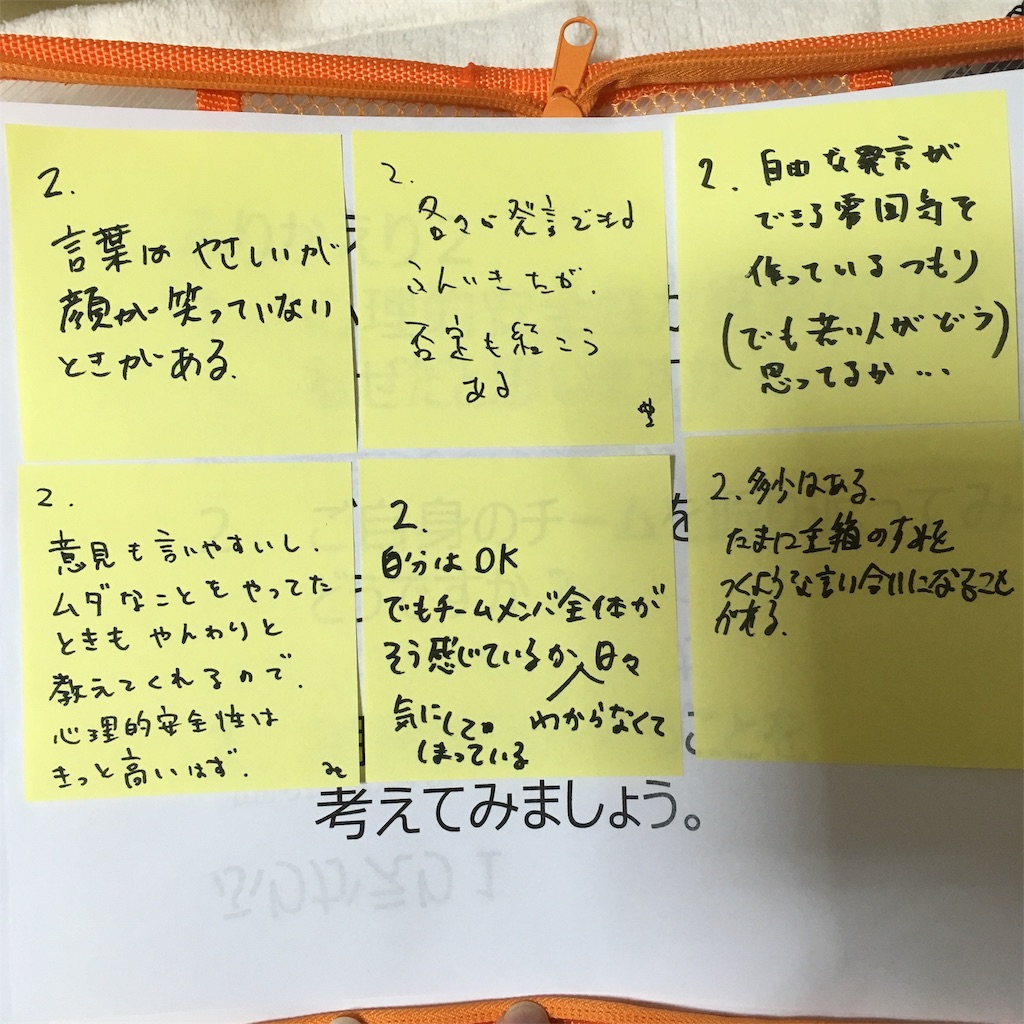 2.
言葉は やさしいが
顔が 笑っていない
ときがある.
2.
各々が発言できる
ふんいきだが.
否定も結こう
ある
2. 自由な発言が
できる雰囲気を
作っている つもり
(でも若い人がどう
思ってるか ...)
2.
意見も言いやすいし.
ムダなことを やってた
ときも やんわりと
教えてくれるので.
心理的安全性は
きっと高いはず.
2.
自分は OK
でもチームメンバ全体が
そう感じているか 日々
気にして。 わからなくて
しまっている
2. 多少はある.
たまに重箱のすみを
つくような言い合いになること
がある.
考えてみましょう。
ふりかえり 1